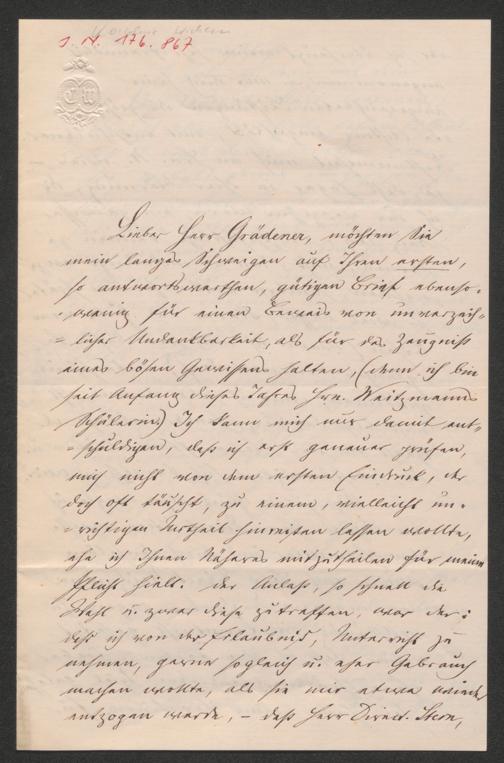 I. N. 176.867
C W
Lieber Herr Grädener, möchten Sie
mein langes Schweigen auf Ihren ersten,
so antwortswerthen, gütigen Brief ebenso-
-wenig für einen Beweis von unverzeih-
-licher Undankbarkeit, als für das Zeugniß
eines bösen Gewissens halten, (denn ich bin
seit Anfang dieses Jahres Hrn. Weitzmanns
Schülerin) Ich kann mich nur damit ent-
-schuldigen, daß ich erst genauer prüfen,
mich nicht von dem ersten Eindruck, der
doch oft täuscht, zu einem, vielleicht un-
-richtigen Urtheil hinreißen lassen wollte,
ehe ich Ihnen Näheres mitzutheilen für meine
Pflicht hielt. Der Anlaß, so schnell die
Wahl u. zwar diese zu treffen, war der:
daß ich von der Erlaubniß, Unterricht zu
nehmen, gerne sogleich u. eher Gebrauch
machen wollte, als sie mir etwa wieder
entzogen werde, – daß Herr Direct. Stern,